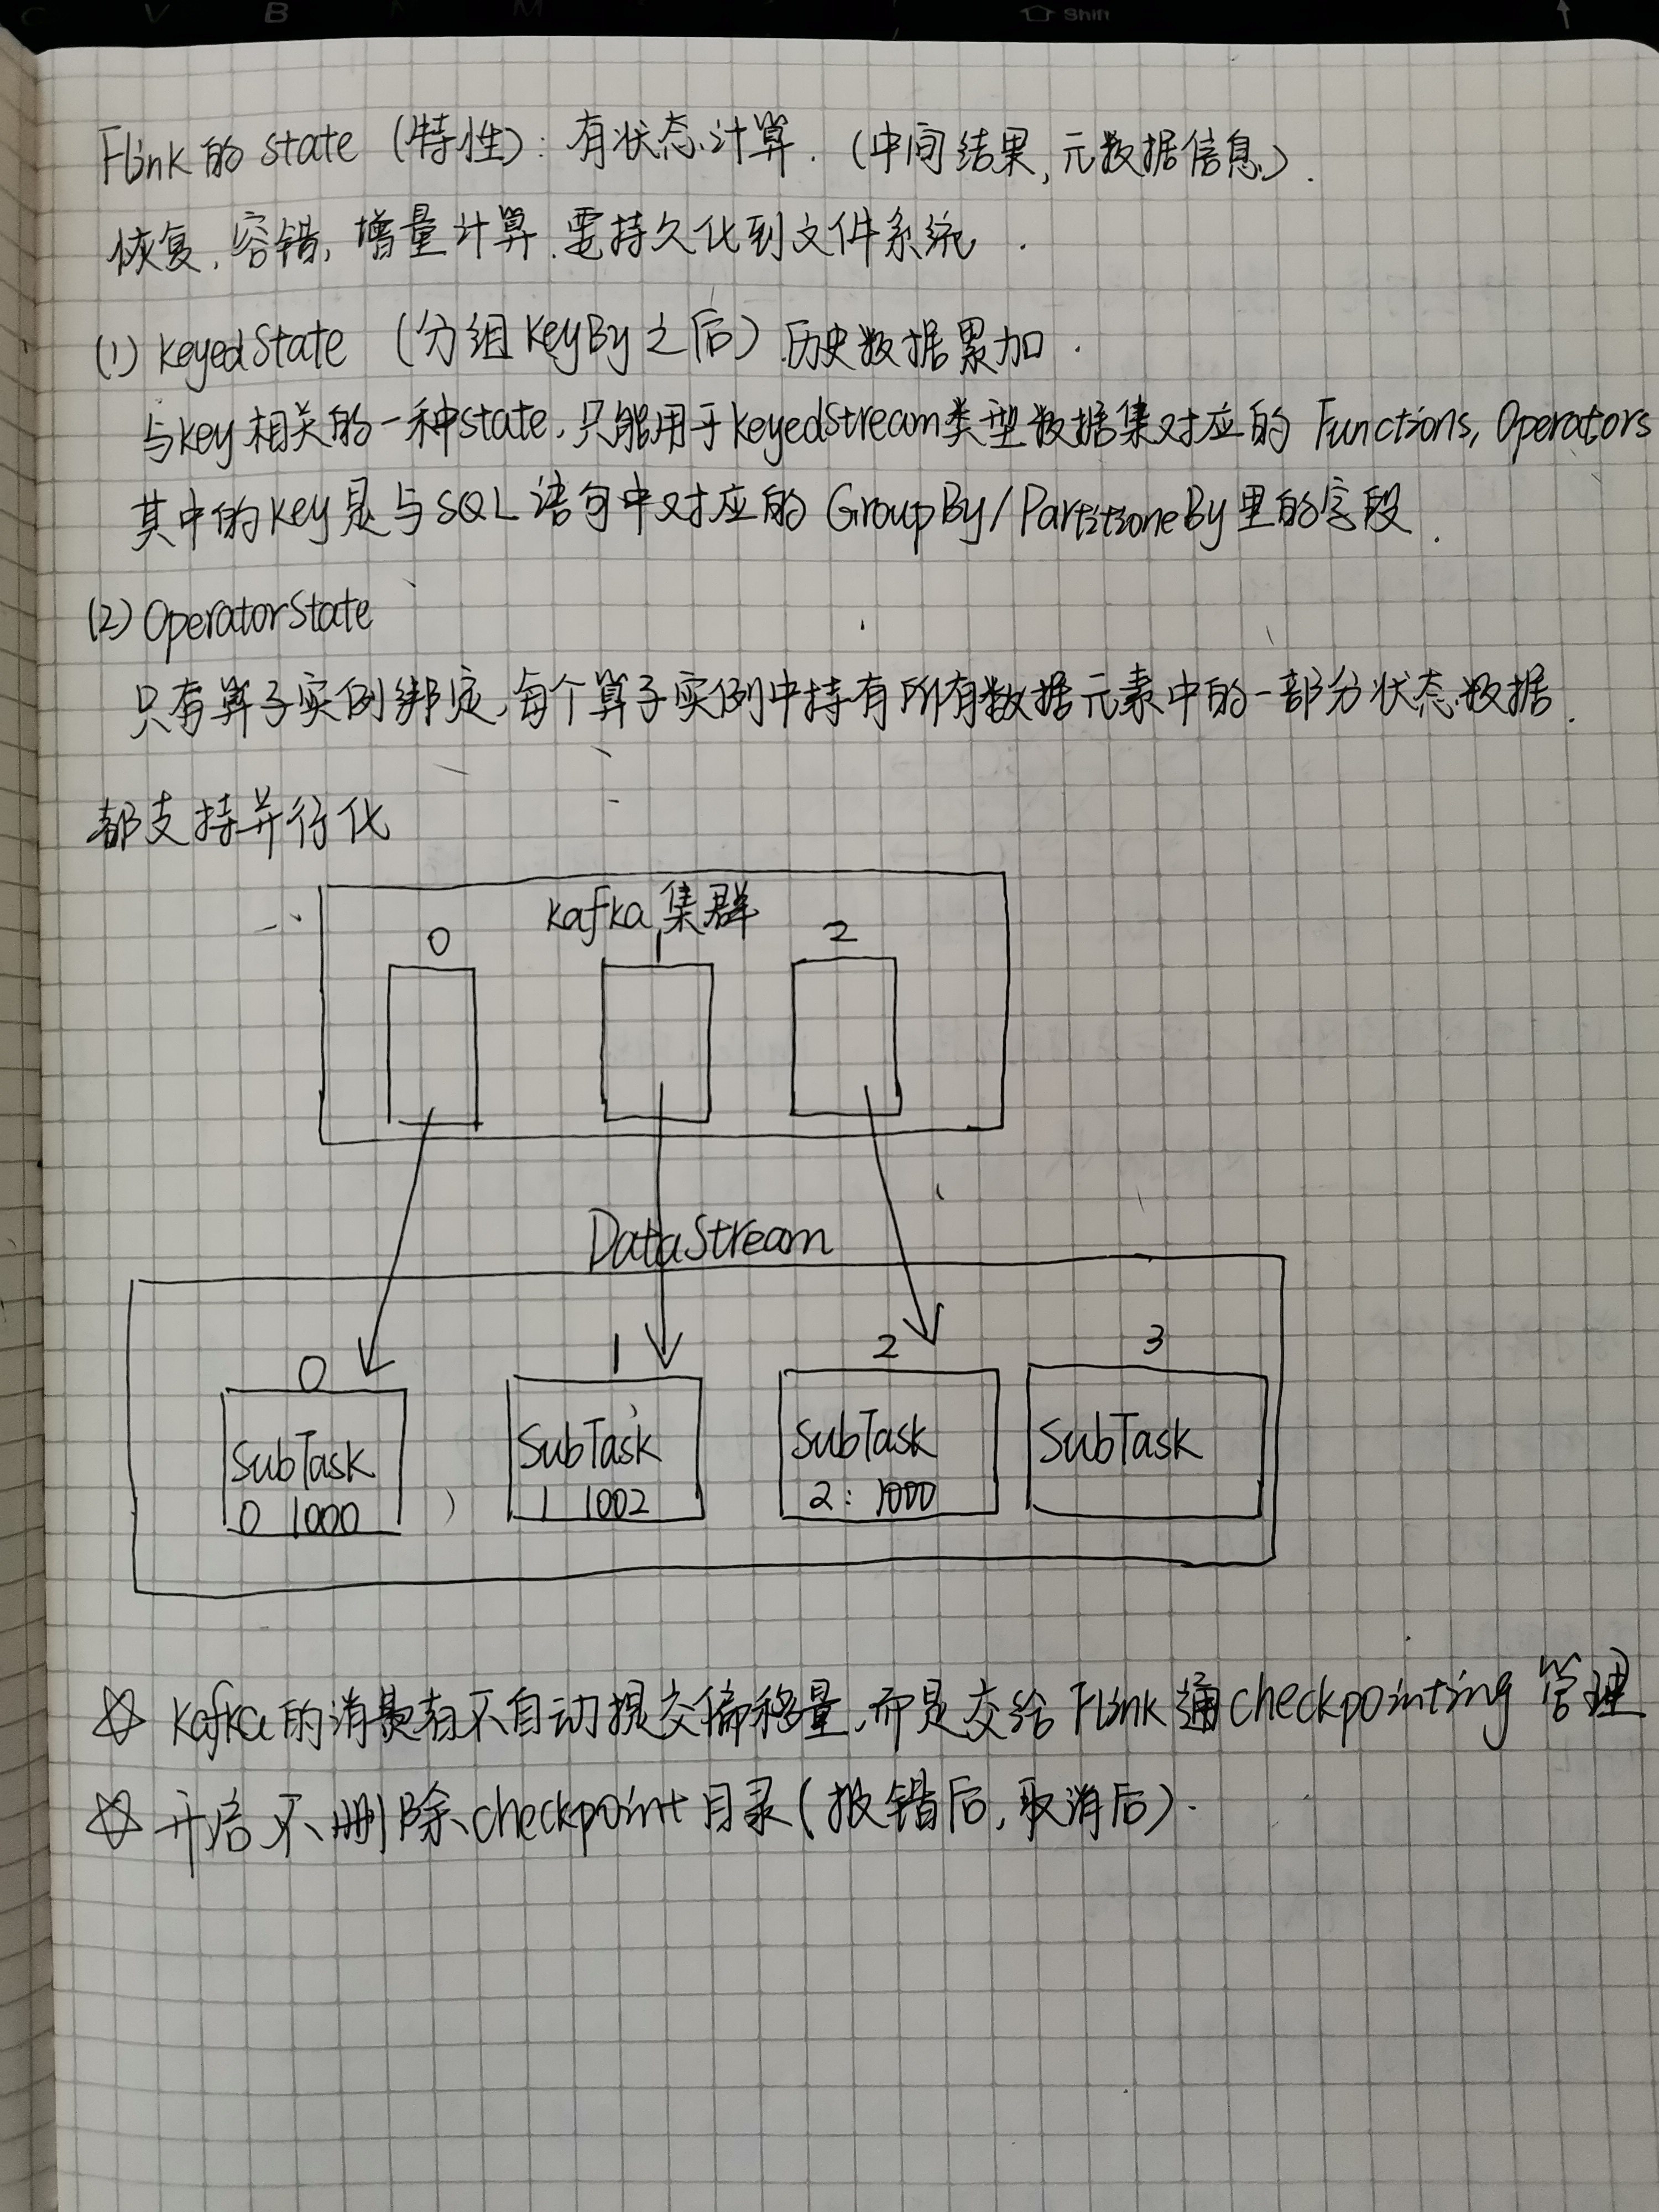 C V B N M Shift
Flink的state(特性):有状态计算.(中间结果,元数据信息).
恢复,容错,增量计算.要持久化到文件系统.
(1) KeyedState (分组KeyBy之后)历史数据累加.
与key相关的一种state,只能用于KeyedStream类型数据集对应的 Functions, Operators
其中的key是与SQL语句中对应的GroupBy/PartitioneBy里的字段.
(2) OperatorState
只有算子实例绑定,每个算子实例中持有所有数据元素中的一部分状态数据.
都支持并行化
Kafka集群
0 1 2
DataStream
0 1 2 3
SubTask SubTask SubTask SubTask
0 1000 1 1002 2: 1000
☆ Kafka的消费者不自动提交偏移量,而是交给Flink通checkpointing管理
☆ 开启不删除checkpoint目录(报错后,取消后).